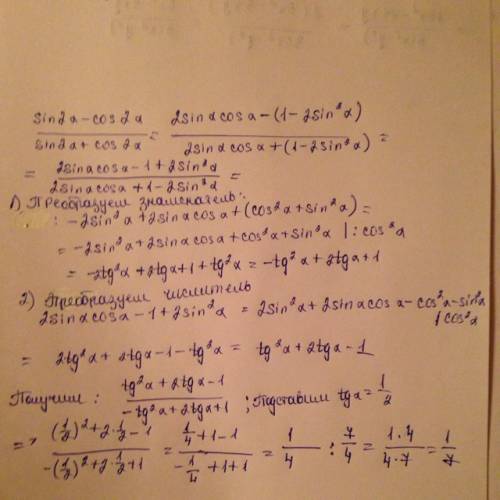 (sin2α - cos2α)/(sin2α + cos2α) = (2sinα cosα - (1 - 2sin²α))/(2sinα cosα + (1 - 2sin²α)) =
= (2sinα cosα - 1 + 2sin²α)/(2sinα cosα + 1 - 2sin²α) =
1) Преобразуем знаменатель:
: -2sin²α + 2sinα cosα + (cos²α + sin²α) =
= -2sin²α + 2sinα cosα + cos²α + sin²α |: cos²α
= -2tg²α + 2tgα + 1 + tg²α = -tg²α + 2tgα + 1
2) Преобразуем числитель
2sinα cosα - 1 + 2sin²α = 2sin²α + 2sinα cosα - cos²α - sin²α
/cos²α
= 2tg²α + 2tgα - 1 - tg²α = tg²α + 2tgα - 1
Получим: (tg²α + 2tgα - 1)/(-tg²α + 2tgα + 1); Подставим tgα = 1/2
=> ((1/2)² + 2·1/2 - 1)/(-(1/2)² + 2·1/2 + 1) = (1/4 + 1 - 1)/(-1/4 + 1 + 1) = 1/4 : 7/4 = (1·4)/(4·7) = 1/7